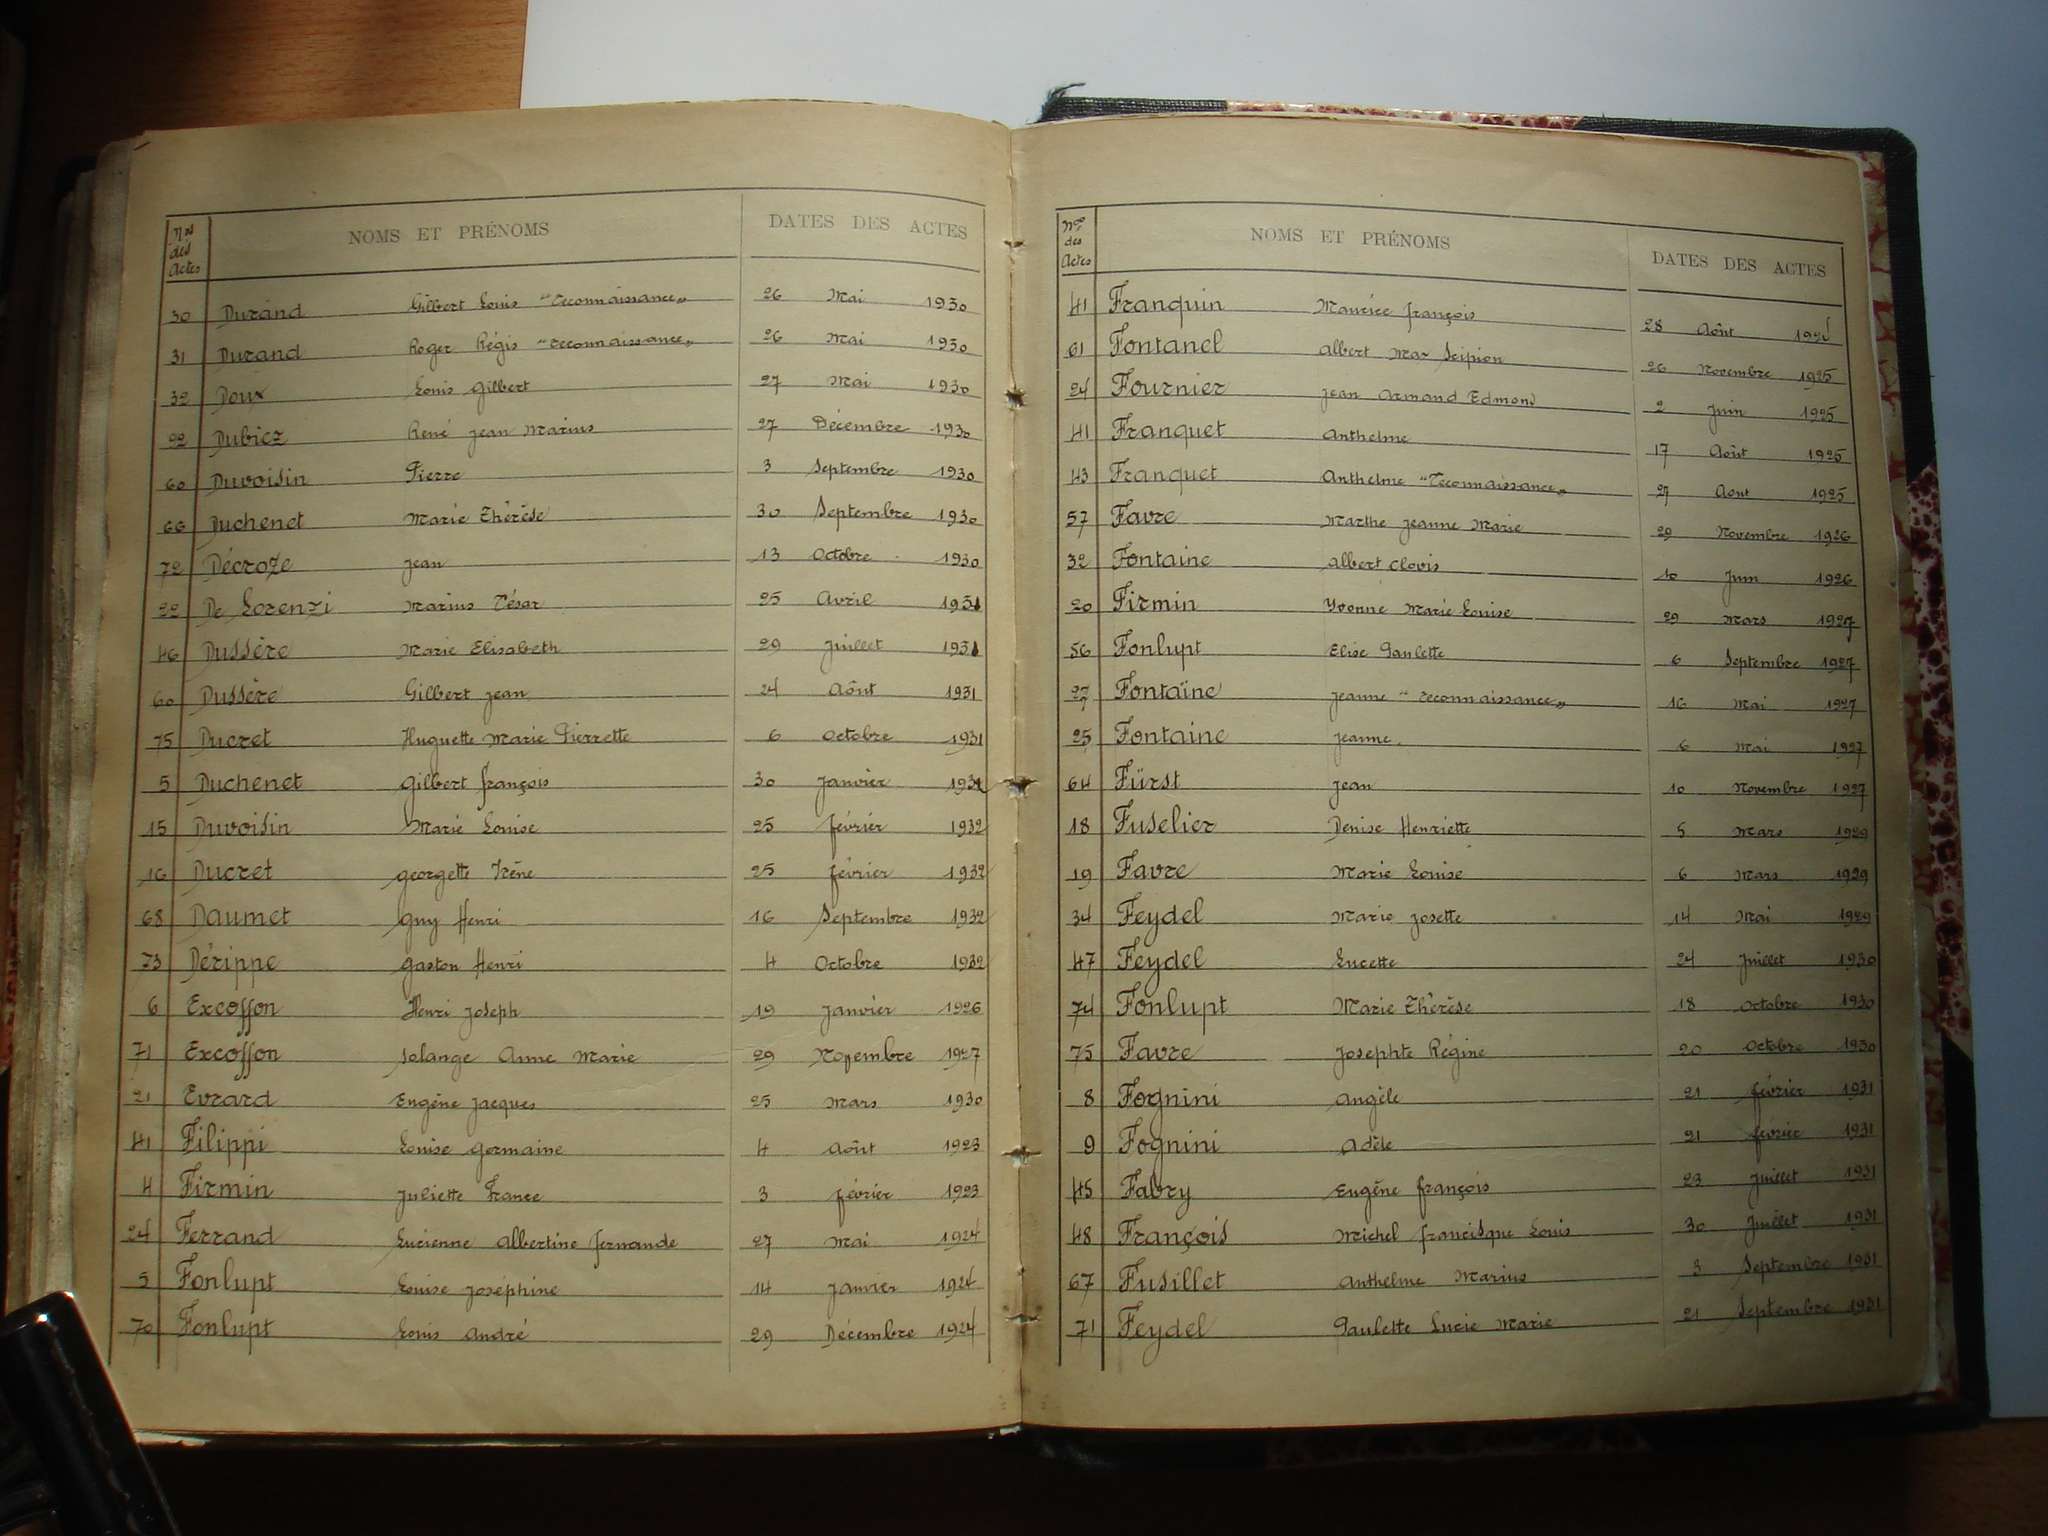 Nos des Actes NOMS ET PRÉNOMS DATES DES ACTES
30 Durand Gilbert Louis "reconnaissance" 26 Mai 1930
31 Durand Roger Régis "reconnaissance" 26 Mai 1930
32 Doux Louis Gilbert 27 Mai 1930
92 Dubicz René Jean Marius 27 Décembre 1930
60 Duvoisin Pierre 3 Septembre 1930
66 Duchenet Marie Thérèse 30 Septembre 1930
72 Décroze Jean 13 Octobre 1930
22 De Lorenzi Marius César 25 Avril 1931
46 Dussère Marie Elisabeth 29 Juillet 1931
60 Dussère Gilbert Jean 24 Août 1931
75 Ducret Huguette Marie Pierrette 6 Octobre 1931
5 Duchenet Gilbert François 30 Janvier 1932
15 Duvoisin Marie Louise 25 février 1932
16 Ducret Georgette Irène 25 février 1932
68 Daumet Guy Henri 16 Septembre 1932
73 Dérippe Gaston Henri 4 Octobre 1932
6 Excoffon Henri Joseph 19 Janvier 1926
71 Excoffon Solange Anne Marie 29 Novembre 1927
21 Evrard Eugène Jacques 25 Mars 1930
41 Filippi Louise Germaine 4 Août 1923
4 Firmin Juliette France 3 février 1923
24 Ferrand Lucienne Albertine Fernande 27 Mai 1924
5 Fonlupt Louise Joséphine 14 Janvier 1924
70 Fonlupt Louis André 29 Décembre 1924
Nos des Actes NOMS ET PRÉNOMS DATES DES ACTES
41 Franquin Maurice François 28 Août
61 Fontanel Albert Scipion 26 Novembre 1925
24 Fournier Jean Armand Edmond 2 Juin 1925
41 Franquet Anthelme 17 Août 1925
43 Franquet Anthelme "Reconnaissance" 27 Aout 1925
57 Favre Marthe Jeanne Marie 29 Novembre 1926
32 Fontaine Albert Clovis 10 Juin 1926
20 Firmin Yvonne Marie Louise 29 Mars 1927
56 Fonlupt Elise Paulette 6 Septembre 1927
27 Fontaine Jeanne "reconnaissance" 16 Mai 1927
25 Fontaine Jeanne 6 Mai 1927
64 Fürst Jean 10 Novembre 1927
18 Fuselier Denise Henriette 5 Mars 1929
19 Favre Marie Louise 6 Mars 1929
34 Feydel Marie Josette 14 Mai 1929
47 Feydel Lucette 24 Juillet 1930
74 Fonlupt Marie Thérèse 18 Octobre 1930
75 Favre Josephte Régine 20 Octobre 1930
8 Fognini Angèle 21 février 1931
9 Fognini Adèle 21 février 1931
45 Fabry Eugène François 23 Juillet 1931
48 François Michel Francisque Louis 30 Juillet 1931
67 Fusillet Anthelme Marius 3 Septembre 1931
71 Feydel Paulette Lucie Marie 21 Septembre 1931